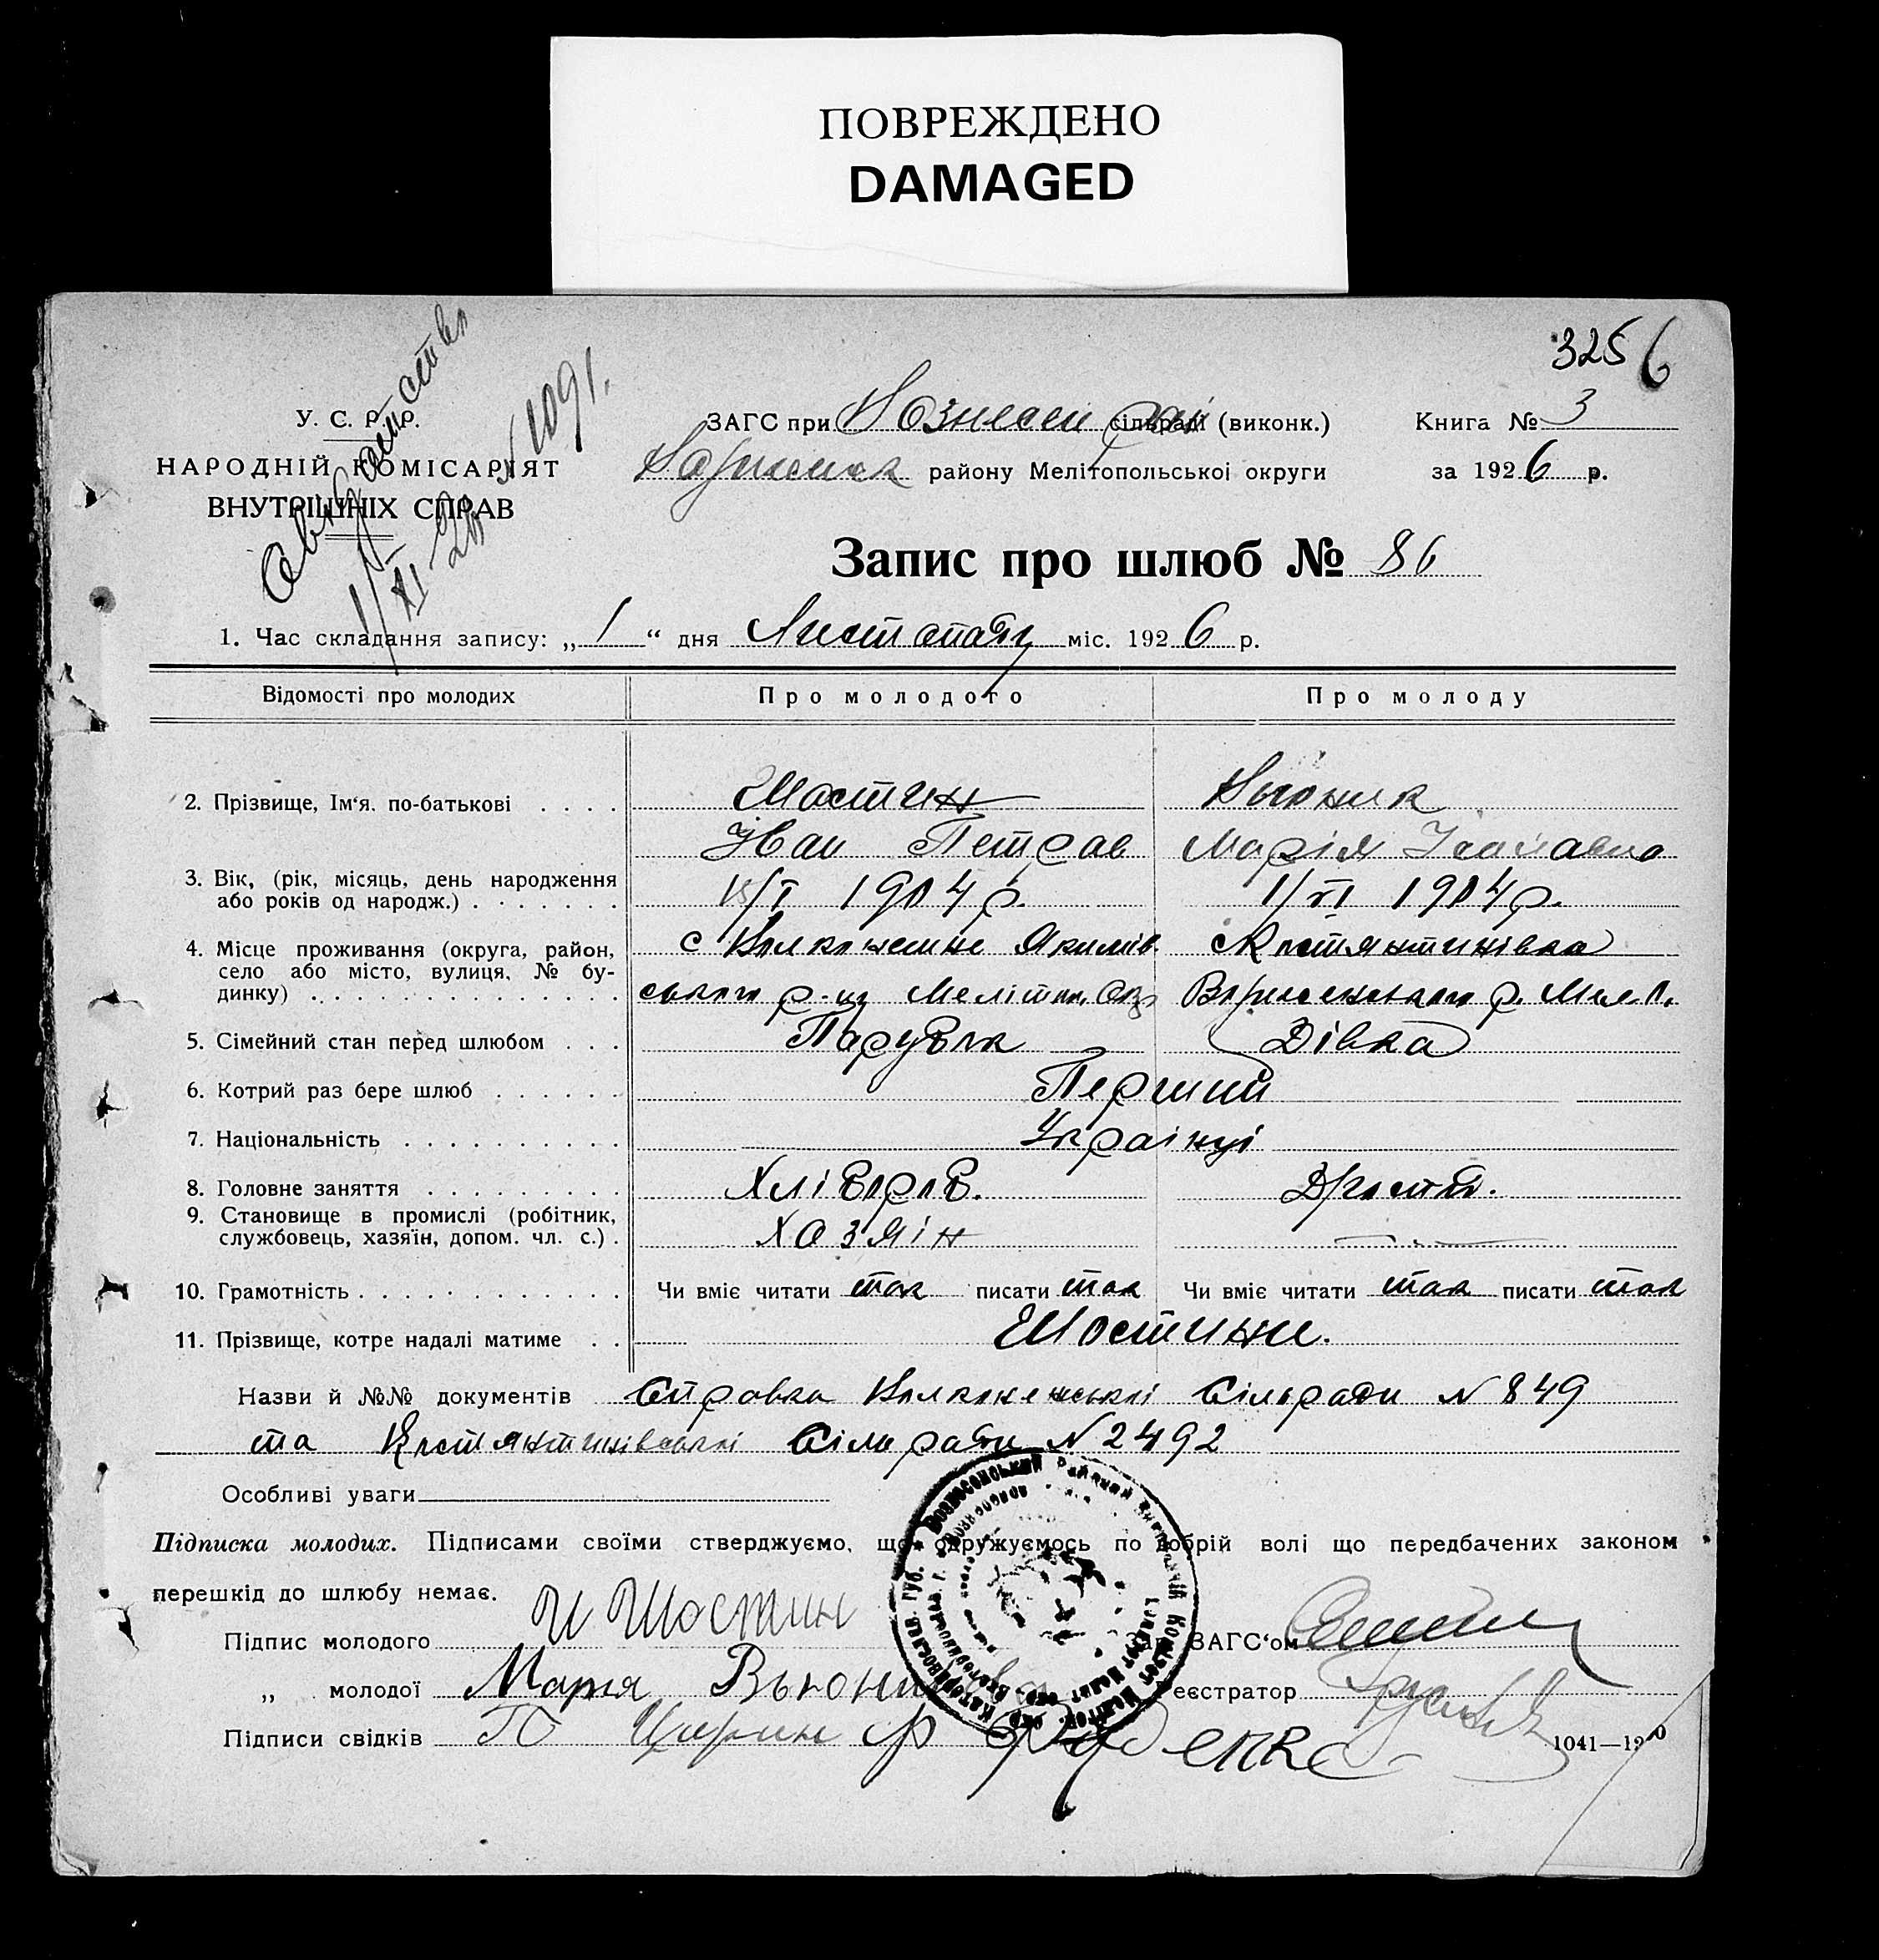 ПОВРЕЖДЕНО
DAMAGED
325 6
У. С. Р. Р.
НАРОДНІЙ КОМІСАРІЯТ
ВНУТРІШНІХ СПРАВ
N 1091.
ЗАГС при сільраді (виконк.)
Книга № 3
району Мелітопольської округи
за 1926 р.
Запис про шлюб № 86
1. Час складання запису: „1“ дня Листопаду міс. 1926 р.
Відомості про молодих
Про молодого
Про молоду
2. Прізвище, Ім‘я. по-батькові
Шостин
Вьюник
Іван Петров
Марія
3. Вік, (рік, місяць, день народження
або років од народж.)
1904 р.
1/VI 1904 р.
4. Місце проживання (округа, район,
село або місто, вулиця, № бу-
динку)
с Якимів
ського р-ну Мелітоп. Окр
с Костянтинівка
р. Мел.
5. Сімейний стан перед шлюбом
Парубок
Дівка
6. Котрий раз бере шлюб
Перший
7. Національність
Українці
8. Головне заняття
Хлібороб.
9. Становище в промислі (робітник,
службовець, хазяїн, допом. чл. с.)
Хозяін
10. Грамотність
Чи вміє читати так писати так
Чи вміє читати так писати так
11. Прізвище, котре надалі матиме
Шостини.
Назви й №№ документів Справка Сільради N 849
та Костянтинівської Сільради N 2492
Особливі уваги
Підписка молодих. Підписами своїми стверджуємо, що одружуємось по добрій волі що передбачених законом
перешкід до шлюбу немає.
Підпис молодого И Шостин
Зав. ЗАГС‘ом
„ молодої Мария
Реєстратор
Підписи свідків
1041—19